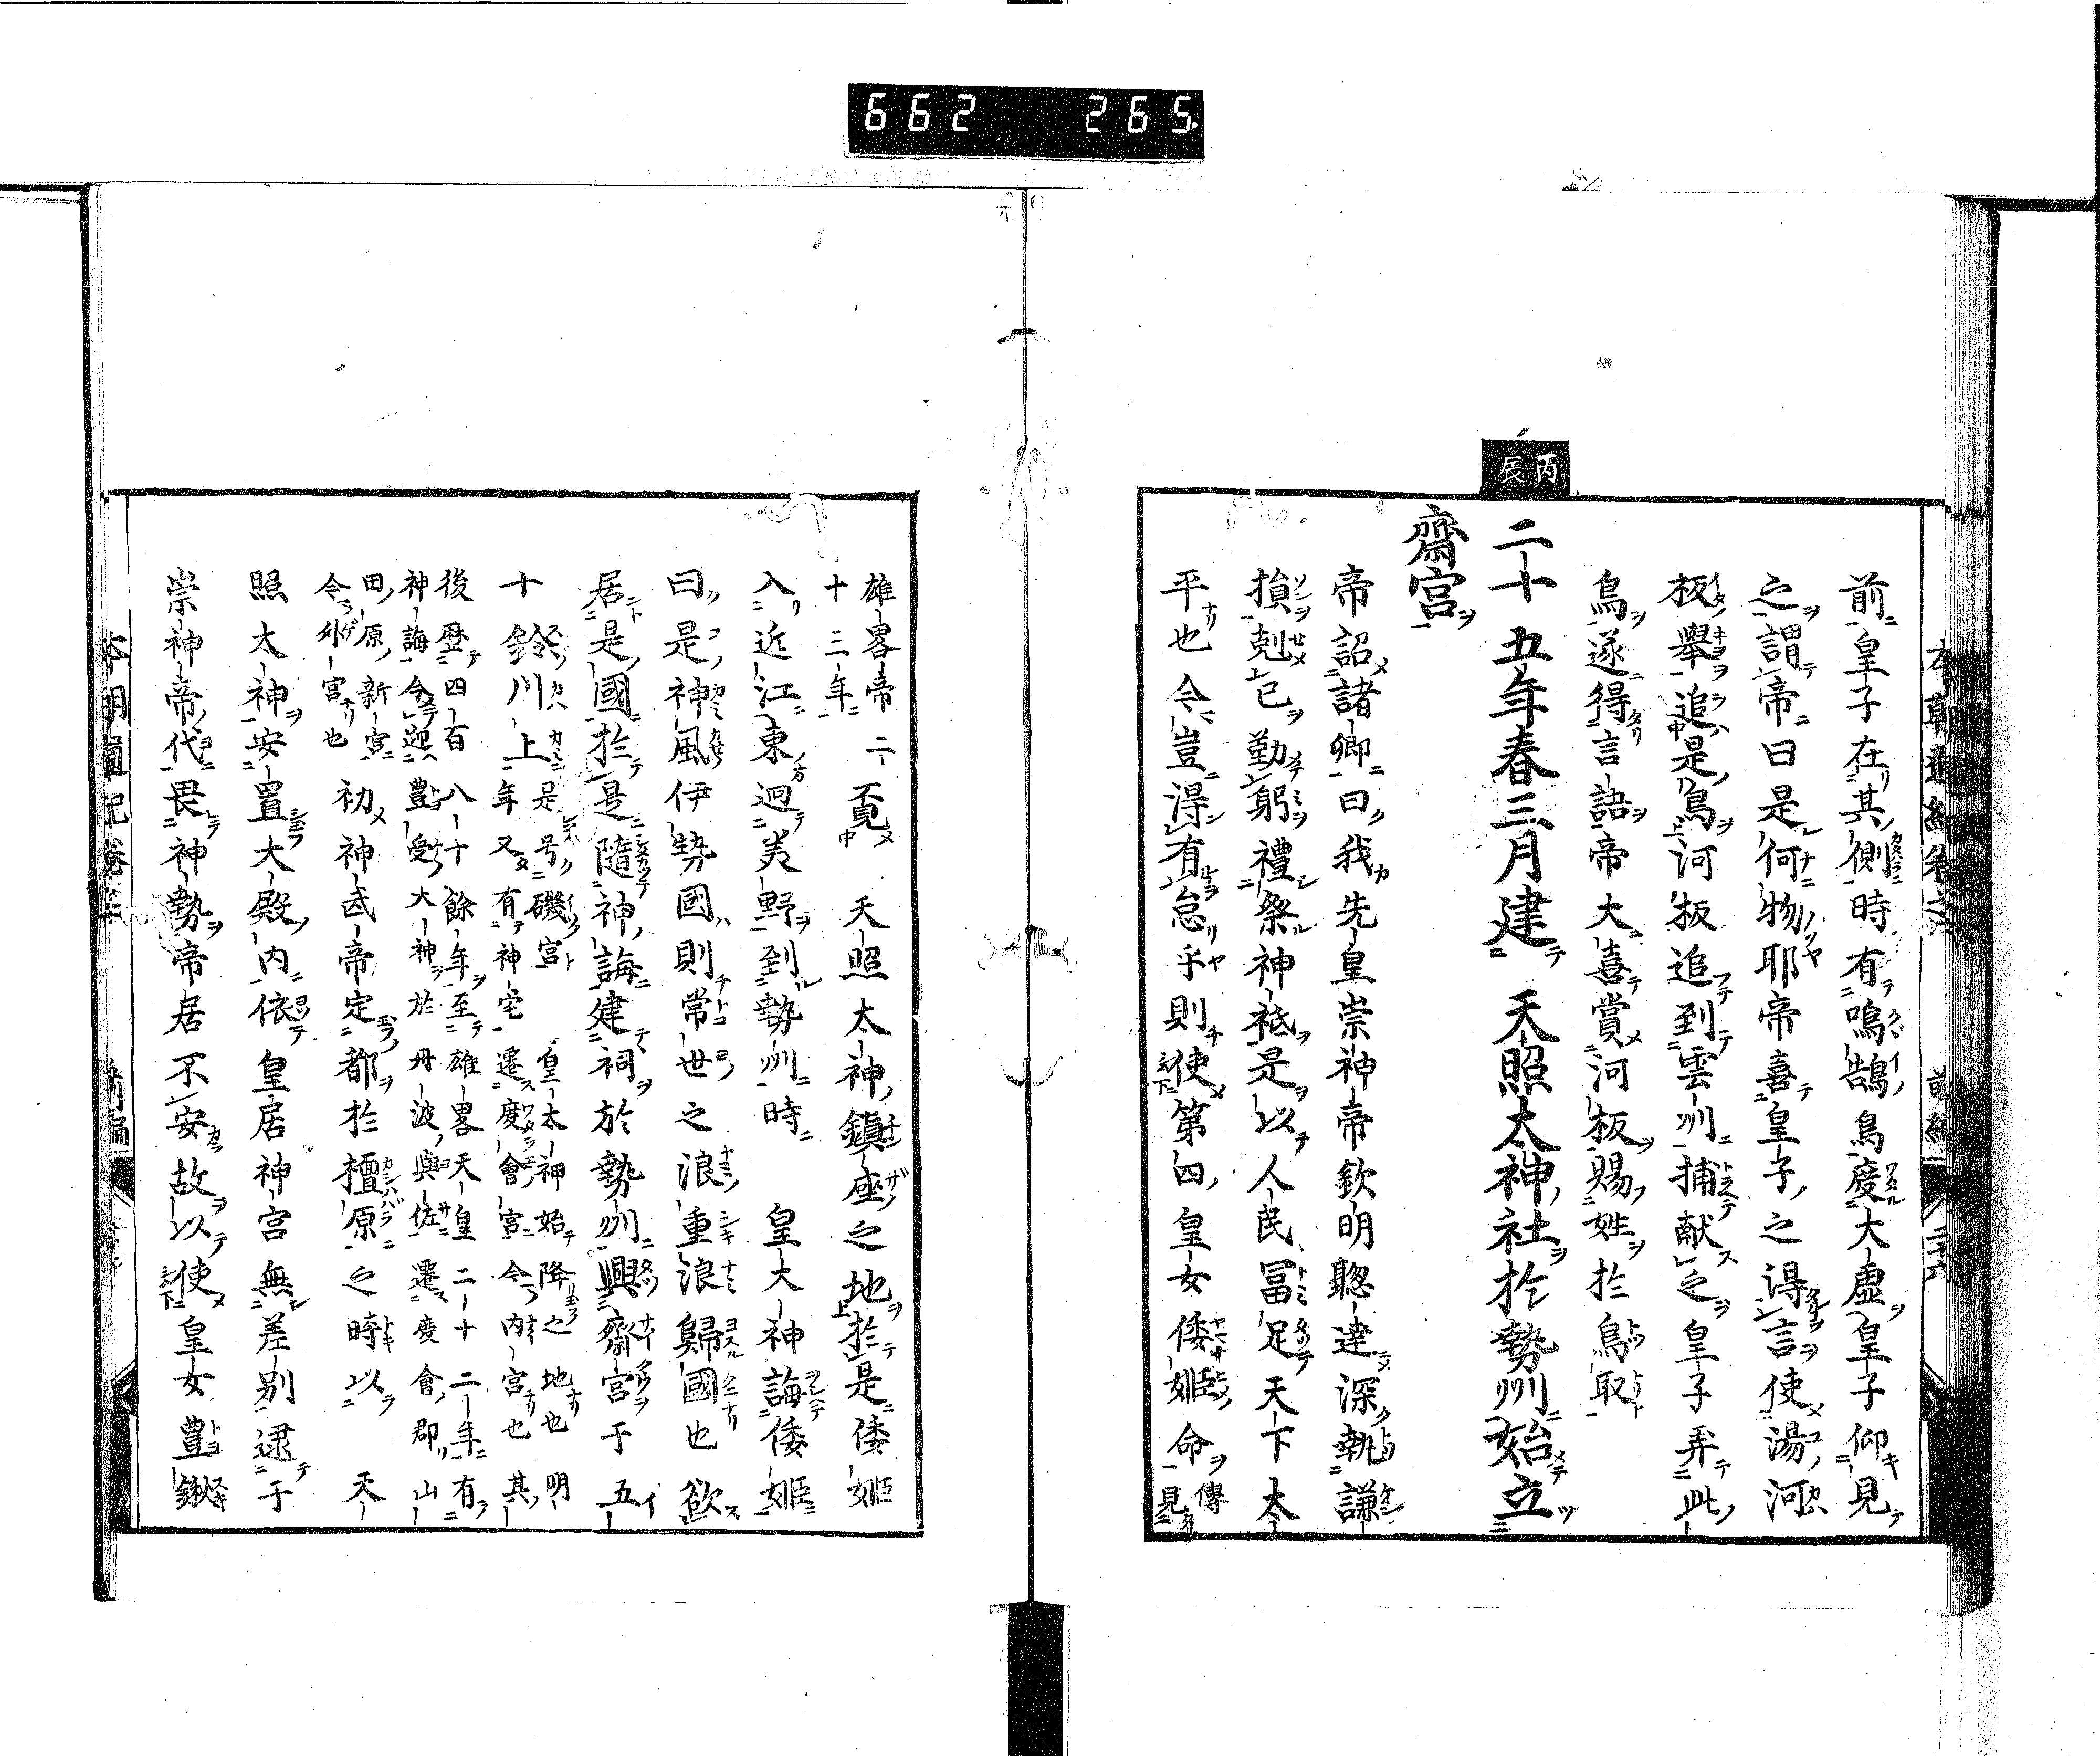 662 265
丙辰
前皇子在其側時有鳴鵠鳥度大虛皇子仰見
之謂帝曰是何物耶帝喜皇子之得言使湯河
板舉追是鳥河板追到雲州捕献之皇子弄此
鳥遂得言語帝大喜賞河板賜姓於鳥取
二十五年春三月建 天照太神社於勢州始立
齋宮
帝詔諸卿曰我先皇崇神帝欽明聰達深執謙
損剋已勤躬禮祭神祗是以人民冨足天下太
平也今豈得有怠乎則使第四皇女倭姬命傳見
雄畧帝二十三年覔 天照太神鎮座之地於是倭姬
入近江東迥美野到勢州時 皇大神誨倭姬
曰是神風伊勢國則常世之浪重浪歸國也欲
居是國於是隨神誨建祠於勢州興齋宮于五
十鈴川上是号磯宮 皇太神始降之地也明年又有神宅遷度會宮今内宮也其
後歷四百八十餘年至雄畧天皇二十二年有神誨令迎豊受大神於丹波與佐遷度會郡山
田原新宮今外宮也初神武帝定都於橿原之時以 天
照太神安置大殿内依皇居神宮無差别逮于
崇神帝代畏神勢帝居不安故以使皇女豊鍬